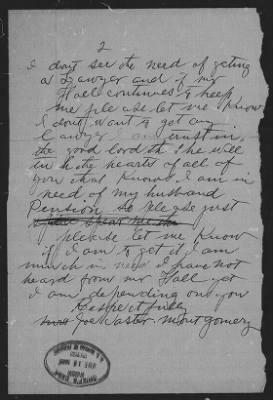 2
I dont see the need of geting
a Lawyer and if mr
Hall continues to keep
me please let me know
I dont want to get any
Lawyer I am trusting
the good lord th she will
in to the hearts of all of
you that knows I am in
need of my husband
Pension so Please just
please let me know
if I am to get it I am
much in need I have not
heard from mr Hall yet
I am depending on you
Respectfully
mrs Joe Easter montgomery